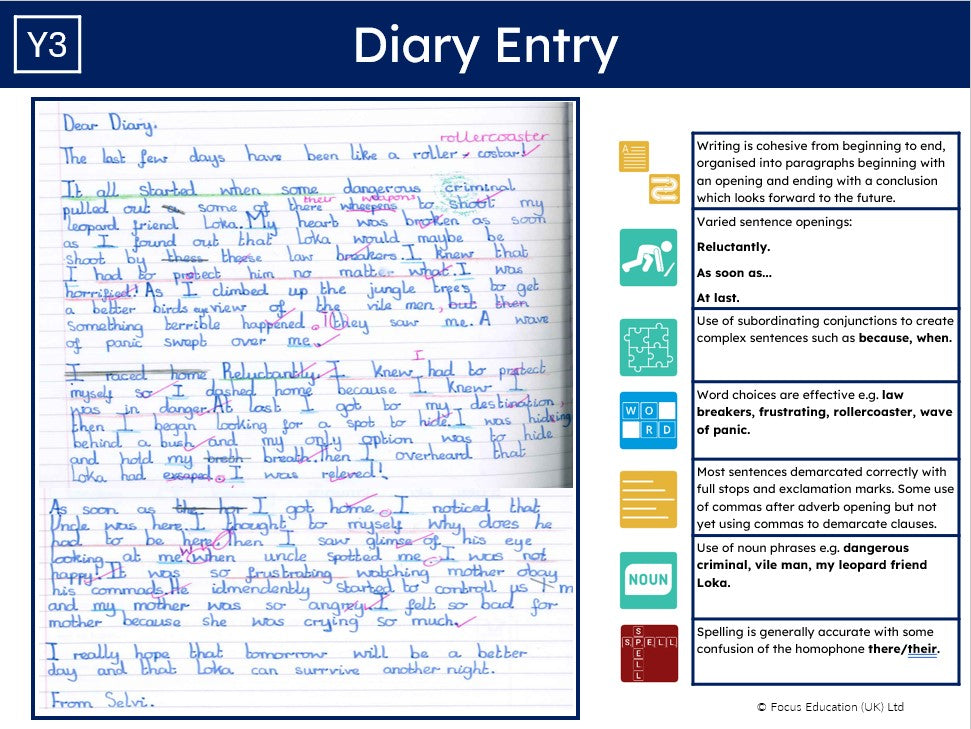 Y3
Diary Entry
Dear Diary.
rollercoaster
The last few days have been like a roller costar!
It all started when some dangerous criminal
their weapons
pulled out some of there wheepens to shoot my
leopard friend Loka. My heart was broken as soon
as I found out that Loka would maybe be
shoot by thess theese law breakers. I knew that
I had to protect him no matter what. I was
horrified! As I climbed up the jungle trees to get
a better birds eye view of the vile men, but then
something terrible happened. They saw me. A wave
of panic swept over me.
I
I raced home Reluctantly, I knew had to protect
myself so I dashed home because I knew I
was in danger. At last I got to my destination,
then I began looking for a spot to hide. I was hideing
behind a bush and my only option was to hide
and hold my breth breath. Then I overheard that
Loka had excaped. I was releved!
As soon as the hor I got home. I noticed that
Uncle was here. I thought to myself why does he
had to be here. Then I saw glimse of his eye
looking at me. When uncle spotted me. I was not
happy! It was so frustrating watching mother obay
his commads. He idmendently started to controll us I'm
and my mother was so angrey. I felt so bad for
mother because she was crying so much.
I really hope that tomorrow will be a better
day and that Loka can surrvive another night.
From Selvi.
Writing is cohesive from beginning to end,
organised into paragraphs beginning with
an opening and ending with a conclusion
which looks forward to the future.
Varied sentence openings:
Reluctantly.
As soon as...
At last.
Use of subordinating conjunctions to create
complex sentences such as because, when.
WO
RD
Word choices are effective e.g. law
breakers, frustrating, rollercoaster, wave
of panic.
Most sentences demarcated correctly with
full stops and exclamation marks. Some use
of commas after adverb opening but not
yet using commas to demarcate clauses.
NOUN
Use of noun phrases e.g. dangerous
criminal, vile man, my leopard friend
Loka.
SPELL
SPELL
Spelling is generally accurate with some
confusion of the homophone there/their.
© Focus Education (UK) Ltd